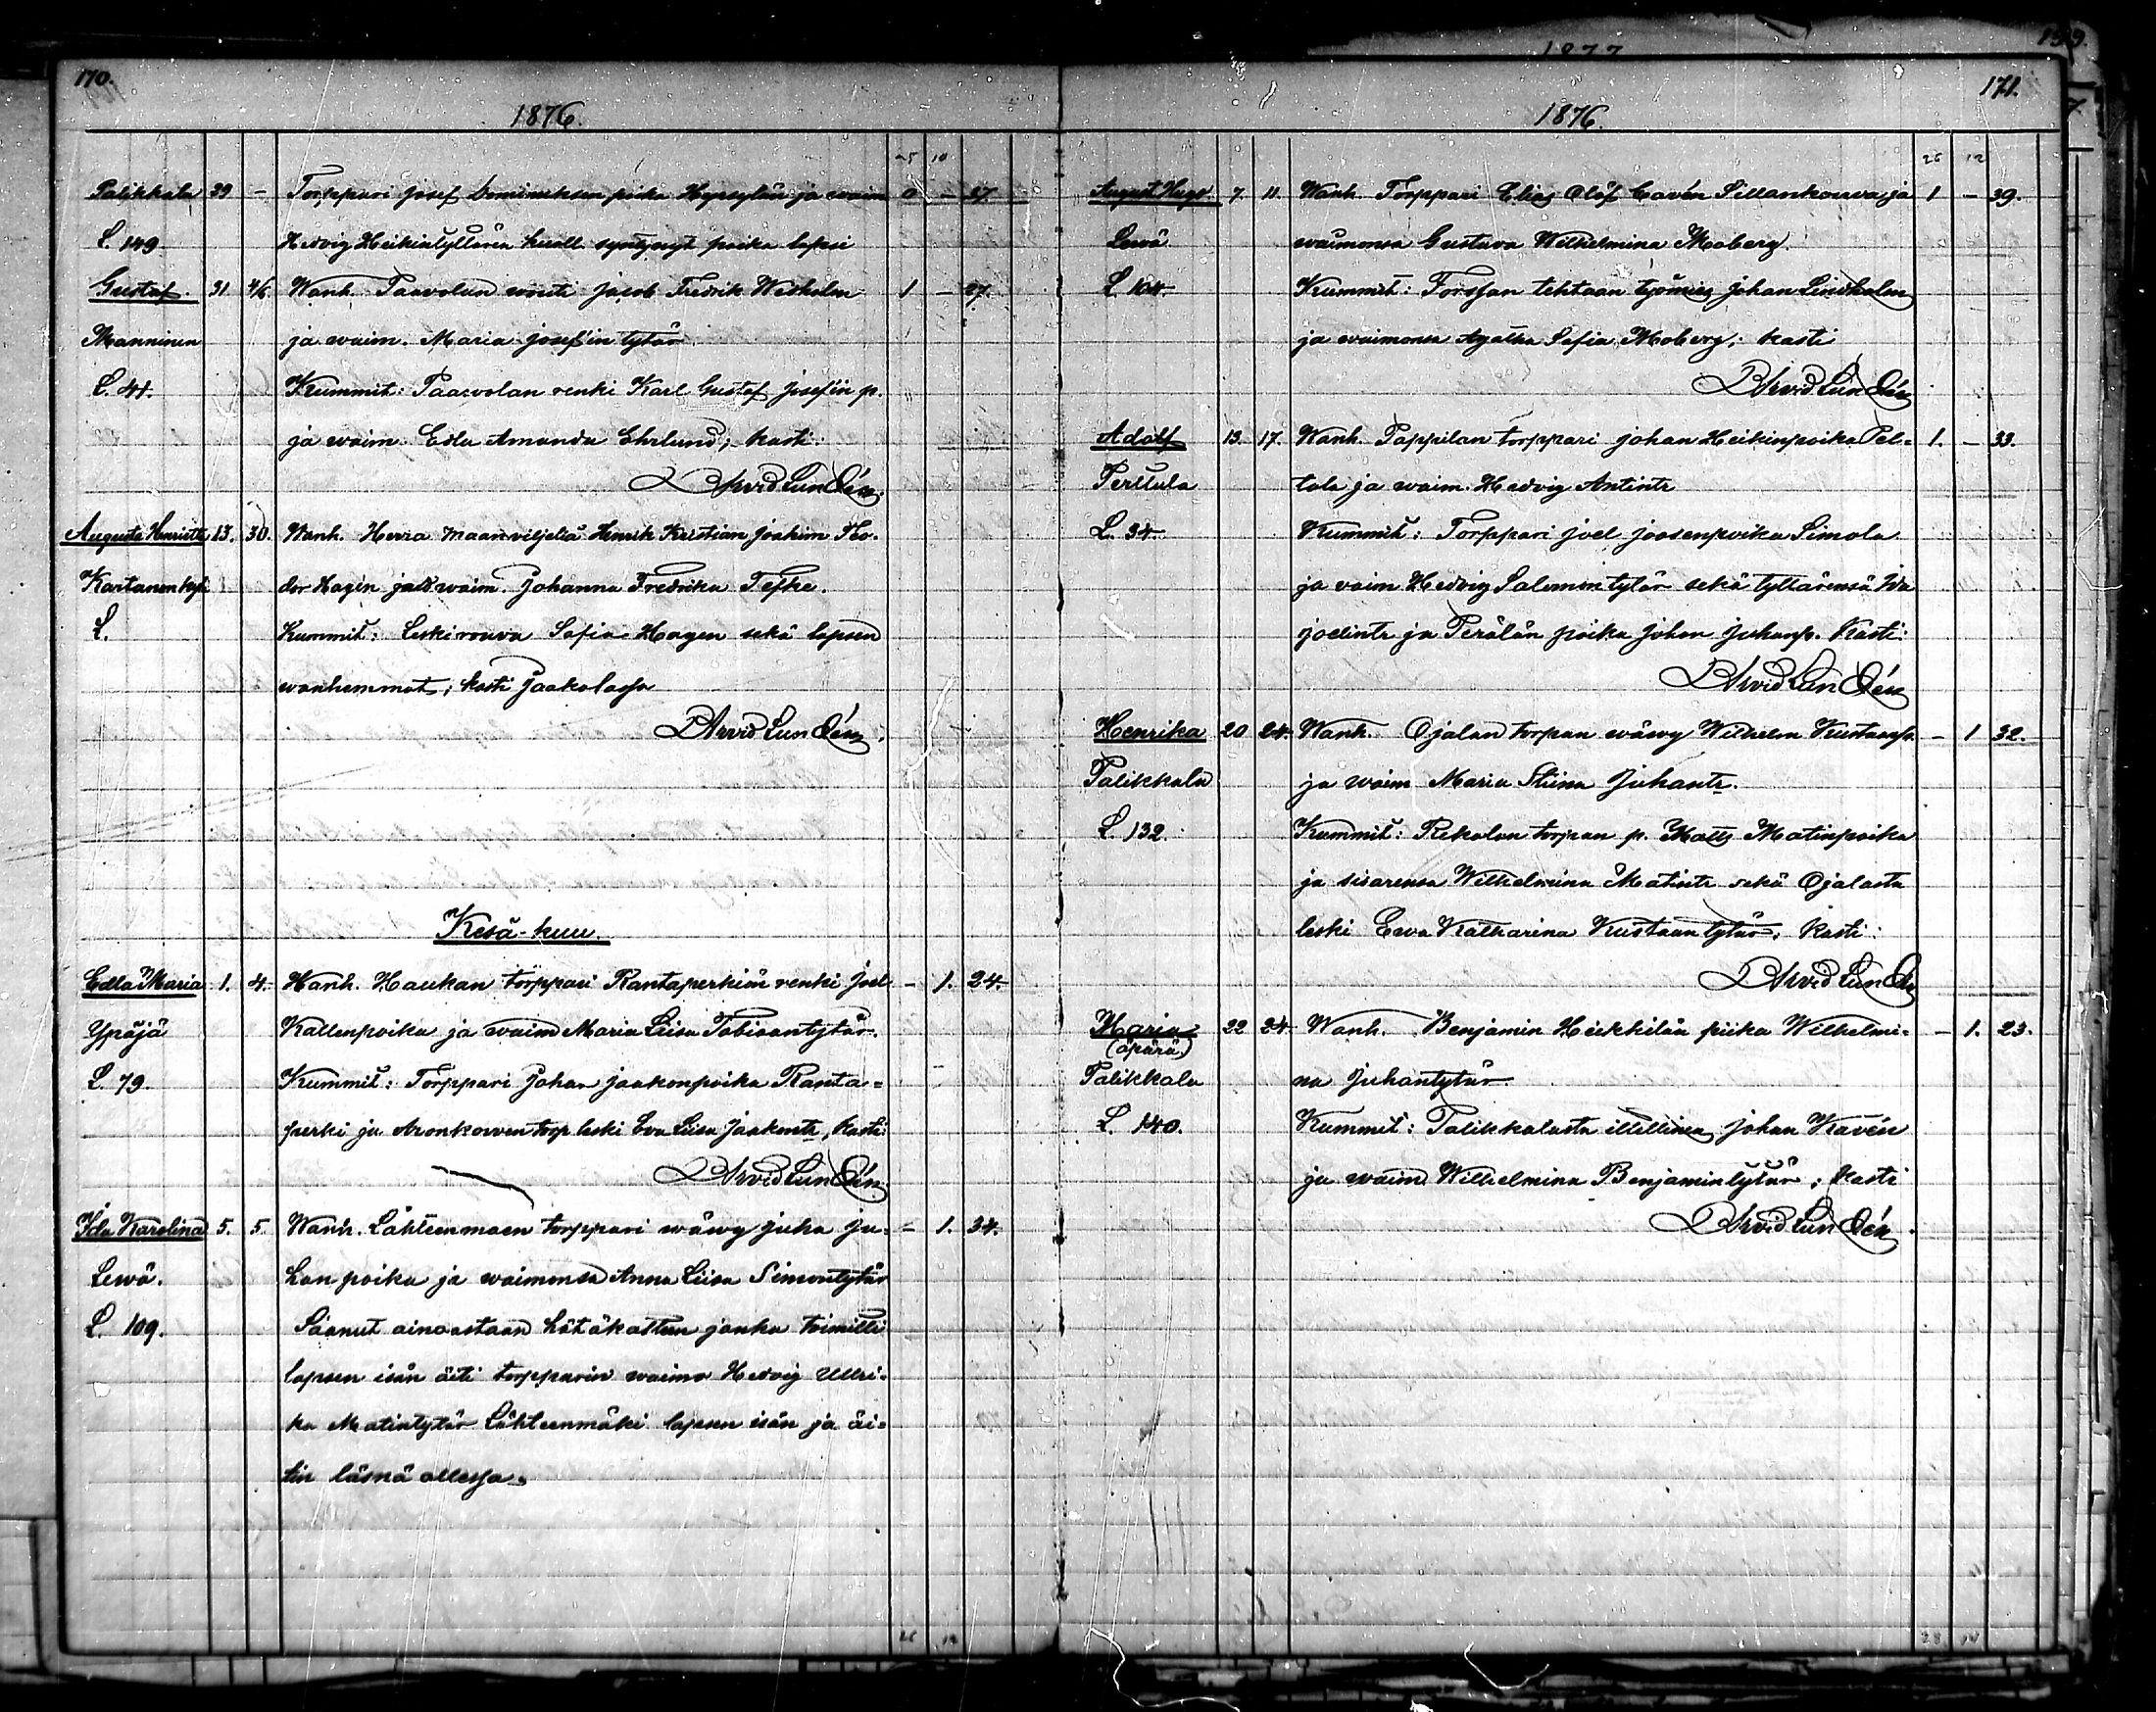 170.
1876.
25 10
Palikkala 29 – Torppari Josef Dominuksen poika Hyrsylän ja waim 0 – 27.
L. 149 Hedvig Heikintyttären kuoll. syntynyt poika lapsi
Gustaf. 31. 4/6 Wanh. Paavolan wouti Jacob Fredrik Weckolm 1 – 27.
Manninen ja waim. Maria Josefin tytär
L. 41. Kummit: Paavolan renki Karl Gustaf Josefin p.
ja waim. Edla Amanda Ehrlund; kasti:
Arvid Lundén.
Augusta Henriette 13. 30. Wanh. Herra maanviljeliä Henrik Kristian Joakim Teo-
Kartanonkylä dor Hagen ja waim. Johanna Fredrika Tefke.
L. Kummit: Leskirouva Sofia Hagen sekä lapsen
wanhemmat; kasti Jaakolassa
Arvid Lundén.
Kesä-kuu.
Edla Maria 1. 4. Wanh. Haukan torppari Rantaperkiön renki Joel – 1. 24.
Ypäjä Kallenpoika ja waim Maria Liisa Tobiaantytär.
L. 79. Kummit: Torppari Johan Jaakonpoika Ranta-
perki ja Aronkorven torp leski Eva Liisa Jaakontr, Kasti:
Arvid Lundén.
Ida Karolina 5. 5. Wanh. Lähteenmaen torppari wäwy Juha Ju- – 1. 34.
Lewä. hanpoika ja waimonsa Anna Liisa Simontytär
L. 109. Saanut ainoastaan hätäkasteen jonka toimitti
lapsen isän äiti torpparin waimo Hedvig Ullri-
ka Matintytär Lähteenmäki lapsen isän ja äi-
tin läsnä ollessa.
26 12
1877
171.
1876.
26 12
August Hugo. 7. 11. Wanh. Torppari Elias Olof Cavén Sillankorva ja 1 – 39.
Lewä waimonsa Gustava Wilhelmina Moberg.
L. 104. Kummit: Forssan tehtaan työmies Johan Lindholm
ja waimonsa Agatha Sofia Moberg; kasti
Arvid Lundén
Adolf 13. 17. Wanh. Pappilan torppari Johan Heikinpoika Pel- 1. – 33.
Perttula tola ja waim. Hedvig Antintr
L. 34 Kummit: Torppari Joel Joosenpoika Simola
ja vaim Hedvig Salomontytär sekä tyttärensä Ida
Joelintr ja Perälän poika Johan Juhanp. Kasti:
Arvid Lundén
Henrika 20 24. Wanh. Ojalan torpan wäwy Wilhelm Kustaanp. – 1 32.
Palikkala ja waim Maria Stiina Juhantr.
L. 132. Kummit: Rekolan torpan p. Matts Matinpoika
ja sisarensa Wilhelmina Matintr sekä Ojalasta
leski Ewa Katharina Kustaantytär; Kasti:
Arvid Lundén
Maria 22 24. Wanh. Benjamin Heikkilän piika Wilhelmi- – 1. 23.
(äpärä)
Palikkala na Juhantytär
L. 140. Kummit: Palikkalasta itsellinen Johan Kavén
ja waim Wilhelmina Benjamintytär; Kasti
Arvid Lundén.
28 14